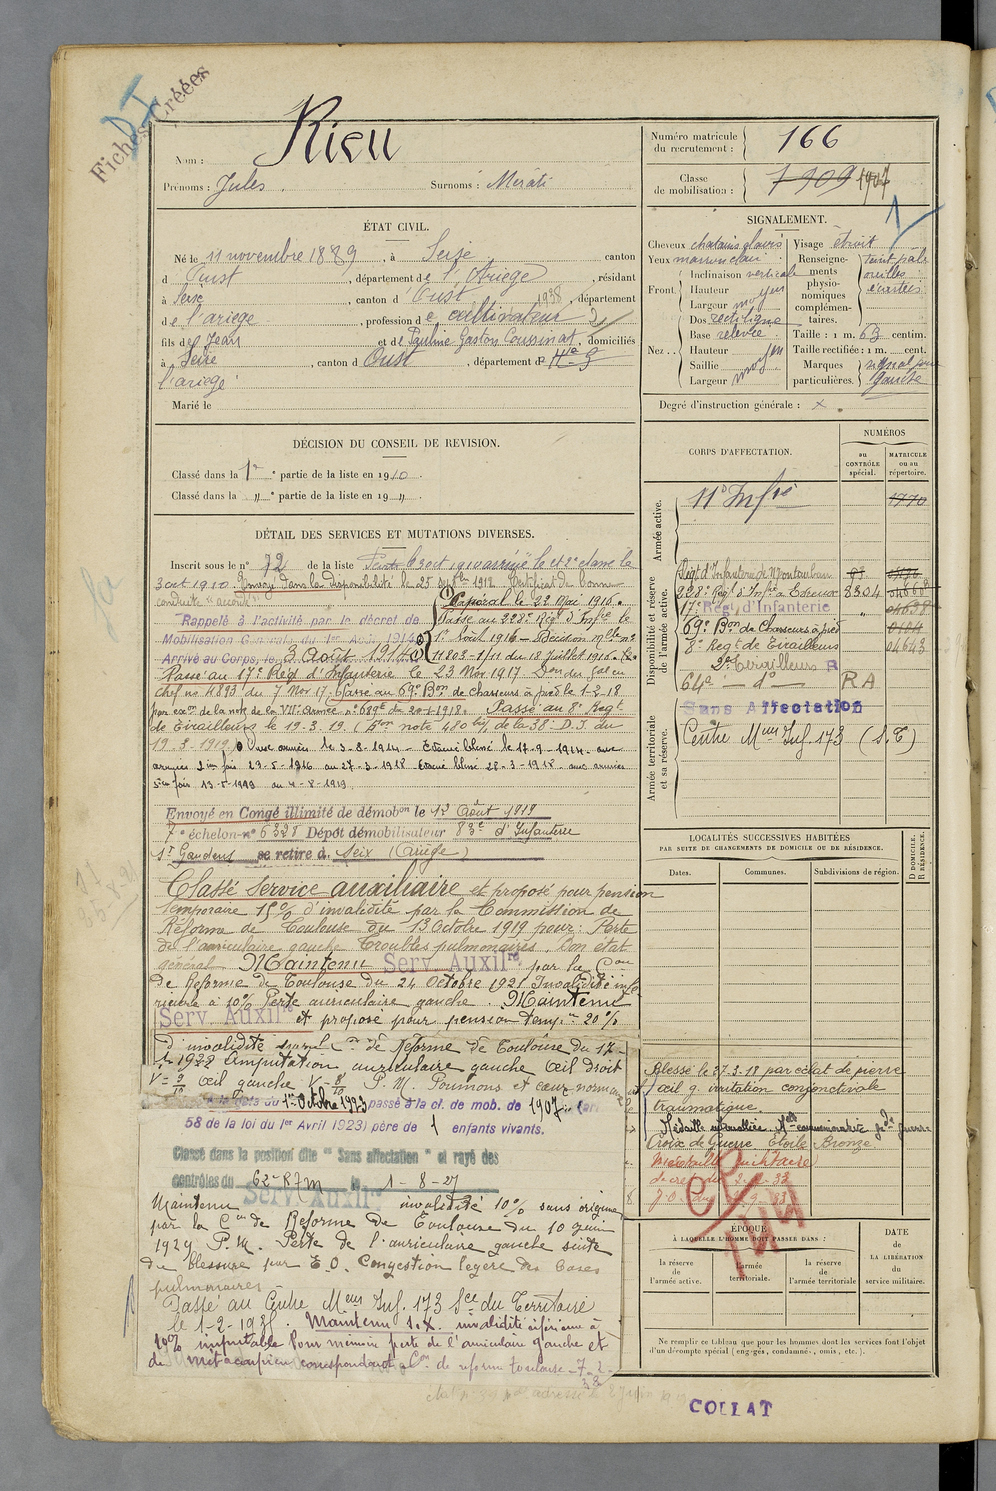 Fiches Créées
Nom : Rieu
Prénoms : Jules. Surnoms : Merati
Numéro matricule du recrutement : 166
Classe de mobilisation : 1909 1907
ÉTAT CIVIL.
Né le 11 novembre 1889, à Seix canton
d'Oust, département de l'Ariège, résidant
à Seix, canton d'Oust 1938, département
de l'ariege, profession de cultivateur
fils de Jean et de Pauline Gaston Coussinat, domiciliés
à Seix, canton d'Oust, département de Hte G
l'ariege
Marié le
SIGNALEMENT.
Cheveux chatains clairs
Yeux marron clair
Front Inclinaison verticale
Hauteur moyen
Largeur
Nez Dos rectiligne
Base relevée
Hauteur moyen
Saillie
Largeur moy
Visage étroit
Renseignements physionomiques complémentaires. teint pale oreilles écartées
Taille : 1 m. 63 centim.
Taille rectifiée : 1 m. cent.
Marques particulières. gauche
Degré d'instruction générale : x
DÉCISION DU CONSEIL DE REVISION.
Classé dans la 1re partie de la liste en 1910
Classé dans la " e partie de la liste en 19 "
DÉTAIL DES SERVICES ET MUTATIONS DIVERSES.
Inscrit sous le n° 72 de la liste 3 oct 1910 arrivé le et 2e classe le
3 oct 1910. Envoyé dans la disponibilité le 25 septbre 1912. Certificat de bonne
conduite "accordé"
Caporal le 22 Mai 1916.
Rappelé à l'activité par le décret de
Mobilisation Générale du 1er Août 1914
Arrivé au Corps, le 3 Août 1914
Passé au 228e Régt d'Infie le
1er Août 1916 — Décision Mlle no
11803-1/11 du 18 Juillet 1916.
Passé au 17e Régt d'Infanterie le 23 Nov 1917 Don du Gal en
chef no 4893 du 7 Nov 17. Passé au 69e Bon de chasseurs à pied le 1-2-18
par exon de la note de la VIIe Armée no 689 du 30-1-1918. Passé au 8e Regt
de Tirailleurs le 19.3.19. (Bon note 480 de la 38e D.I du
19-3-1919) Aux armées le 3-8-1914 - Evacué blessé le 17-9-1914. aux
armées 2ème fois 29-5-1916 au 27-3-1918 Evacué blessé 28-3-1918. aux armées
3ème fois 13-5-1919 au 4-8-1919.
Envoyé en Congé illimité de démobon le 12 Août 1919
7e échelon no 6328 Dépôt démobilisateur 83e d'Infanterie
St Gaudens se retire à Seix (Ariège)
Classé Service auxiliaire et proposé pour pension
temporaire 15% d'invalidité par la Commission de
Réforme de Toulouse du 13 Octobre 1919 pour : Perte
de l'auriculaire gauche Troubles pulmonaires. Bon état
général Maintenu Serv. Auxilre par la Con
de Réforme de Toulouse du 24 Octobre 1921 Invalidité infé
rieure à 10% Perte auriculaire gauche. Maintenu
Serv. Auxilre et proposé pour pension temp. 20%
d'invalidité par la Con de Réforme de Toulouse du 17-
1-1922 Amputation auriculaire gauche œil droit
V = 9/10 œil gauche V = 8/10 P.M. Poumons et cœur normaux
à la date du 1er Octobre 1923 passé à la cl. de mob. de 1907 (art
58 de la loi du 1er Avril 1923) père de 1 enfants vivants.
Classé dans la position dite "Sans affectation" et rayé des
contrôles du 62e R7m le 1-8-27
Maintenu Serv. Auxilre invalidité 10% sans origine
par la Con de Réforme de Toulouse du 10 Juin
1929 P.M. Perte de l'auriculaire gauche suite
de blessure par E.O. Congestion légère des bases
pulmonaires -
Passé au Centre Meur Inf. 173 Sce du Territoire
le 1-2-193. Maintenu S.X. invalidité inférieure à
10% imputable Pour mémoire perte de l'auriculaire gauche et
du métacarpien correspondant Con de reforme toulouse - 7-2-
38
CORPS D'AFFECTATION.
NUMÉROS
au CONTRÔLE spécial.
MATRICULE ou au répertoire.
Armée active.
11e Infie 1770
Disponibilité et réserve de l'armée active.
Régt d'Infanterie de Montauban
228e Régt d'Infie à Evreux 8304 04668
17e Régt d'Infanterie 04628
69e Bon de Chasseurs à pied
8e Regt de Tirailleurs 04643
Tirailleurs R
64e — do — RA
Sans Affectation
Armée territoriale et sa réserve.
Centre Meur Inf. 173 (S.T)
LOCALITÉS SUCCESSIVES HABITÉES
PAR SUITE DE CHANGEMENTS DE DOMICILE OU DE RÉSIDENCE.
Dates. Communes. Subdivisions de région. D DOMICILE. R RÉSIDENCE.
Blessé le 27.3.18 par éclat de pierre
œil g. irritation conjonctivale
traumatique.
Médaille interalliée. Mlle commémorative gde guerre
Croix de Guerre Etoile Bronze
Médaille militaire
CP
ÉPOQUE
À LAQUELLE L'HOMME DOIT PASSER DANS :
la réserve de l'armée active.
l'armée territoriale.
la réserve de l'armée territoriale
DATE de LA LIBÉRATION du service militaire.
Ne remplir ce tableau que pour les hommes dont les services font l'objet
d'un décompte spécial (engagés, condamnés, omis, etc.).
COLLAT